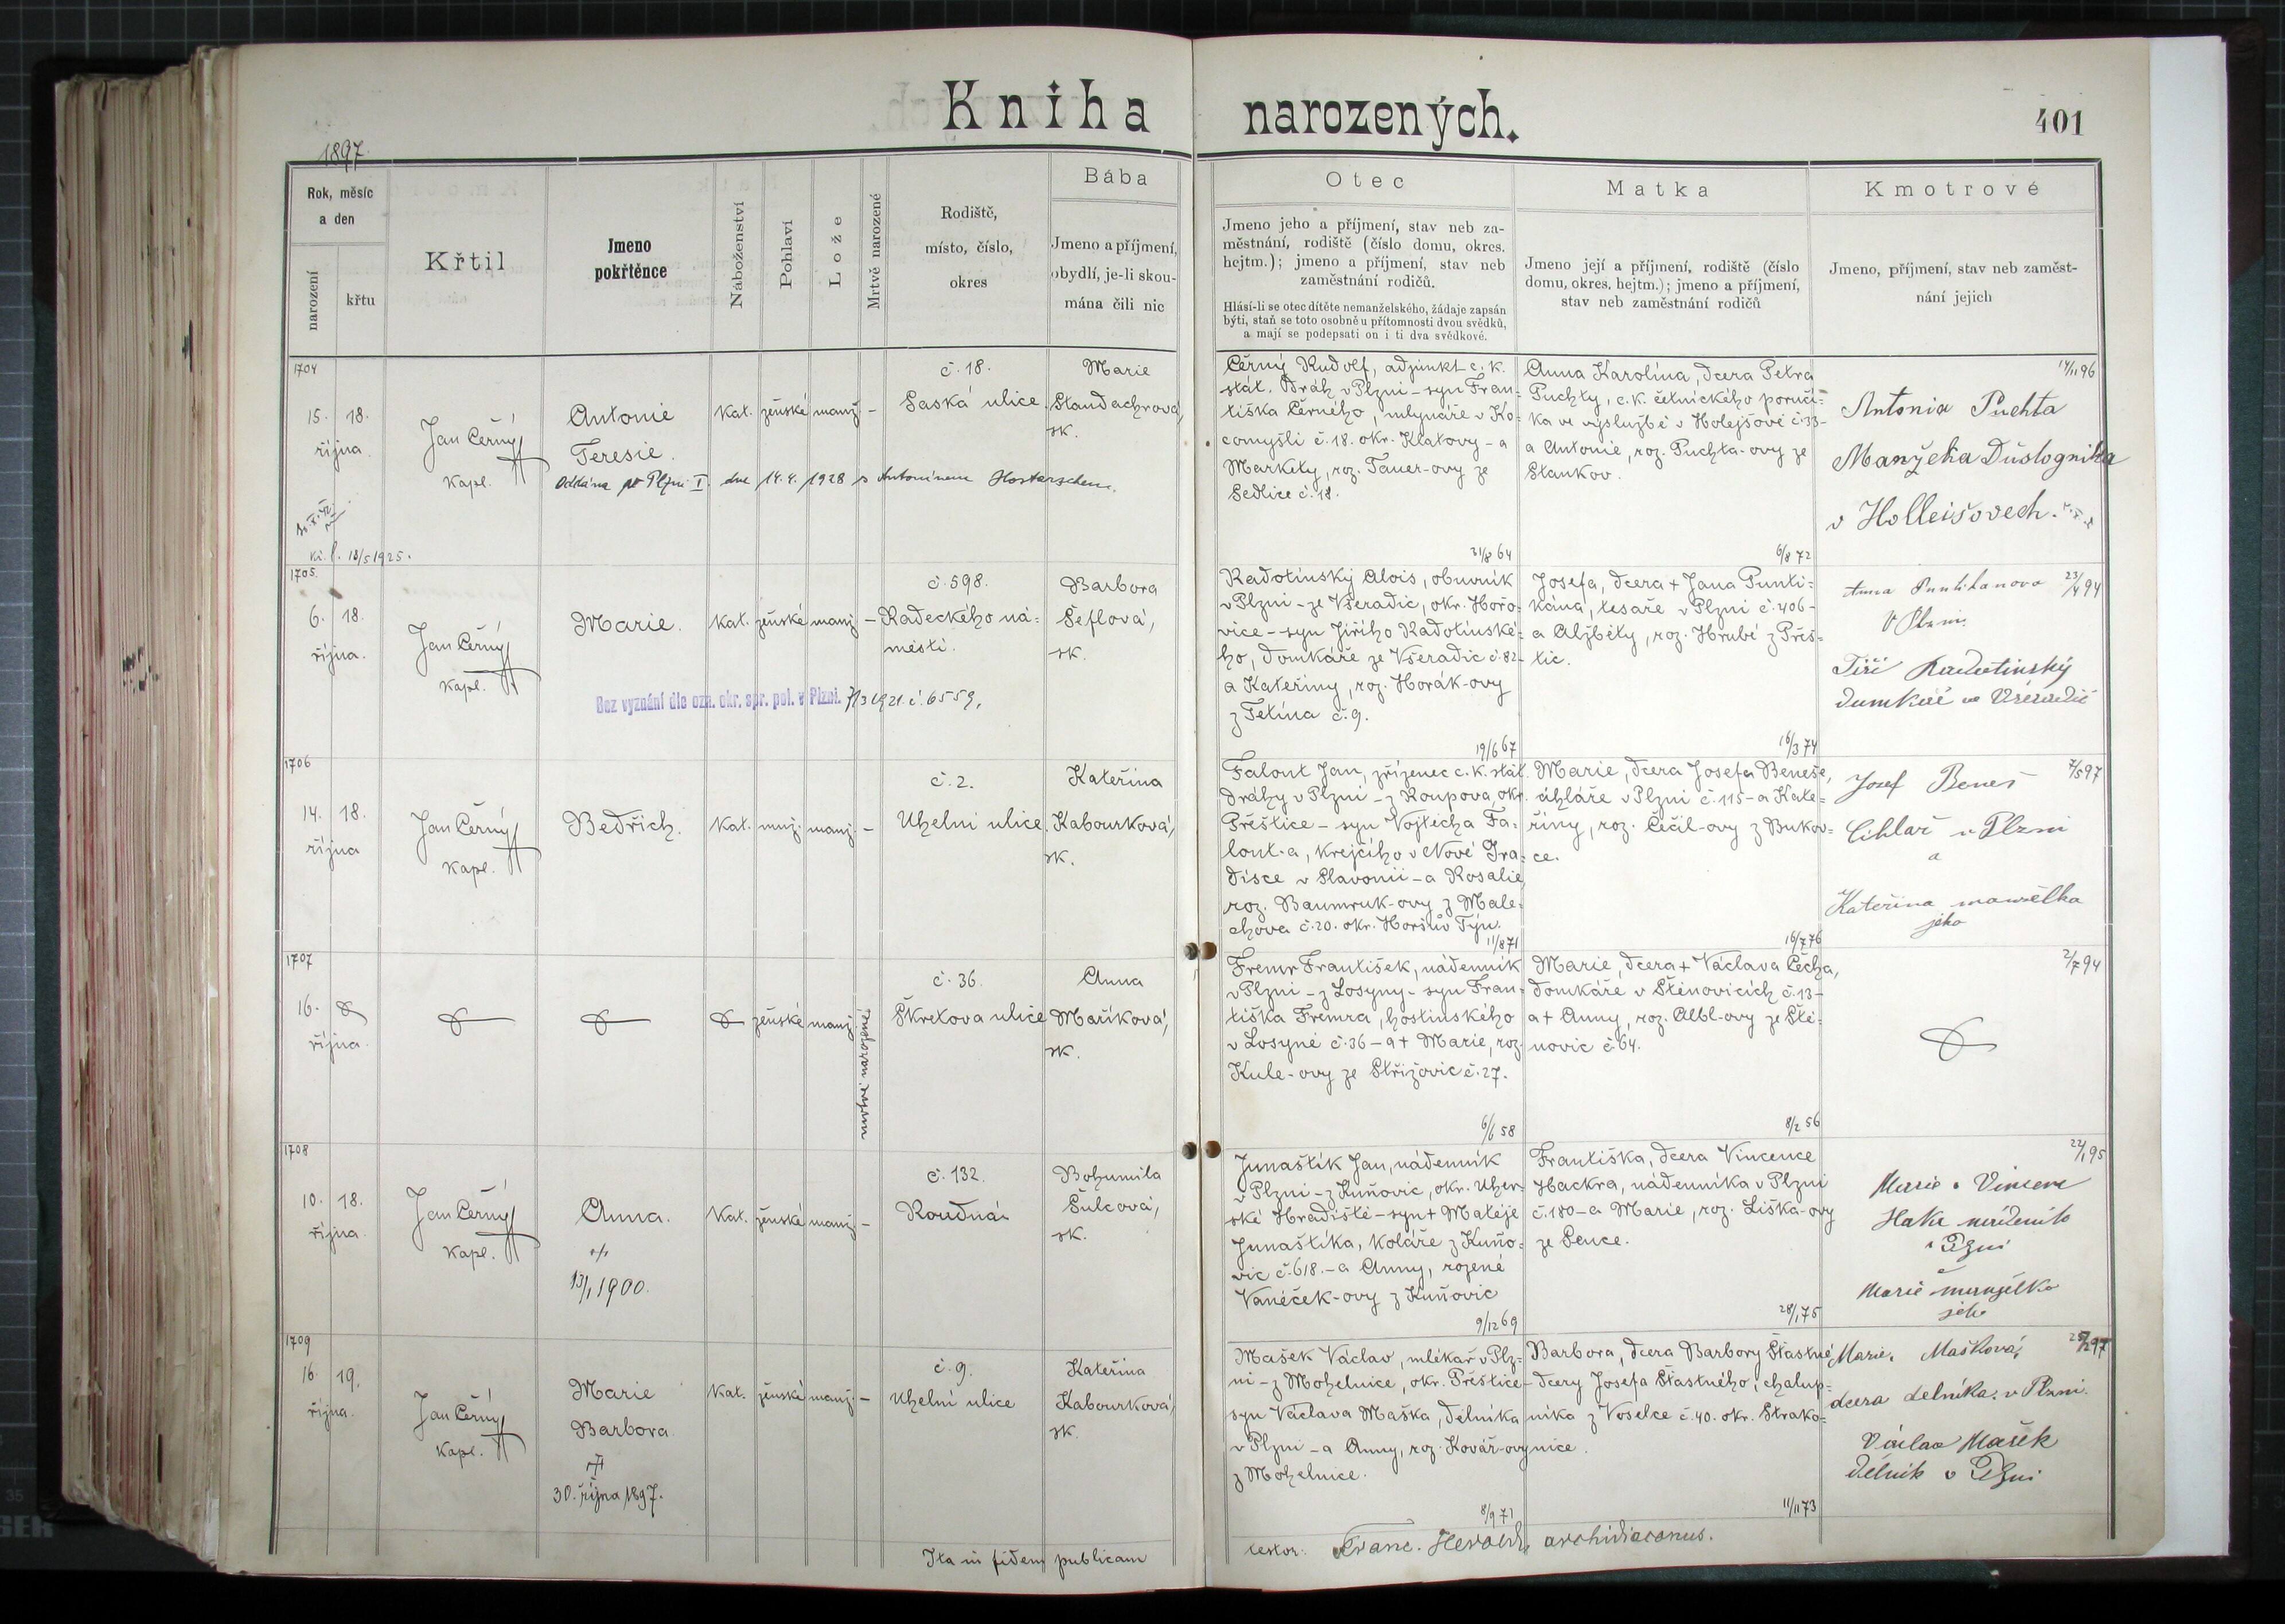 Kniha narozených.
401
1897
Rok, měsíc
a den
narození
křtu
Křtil
Jmeno
pokřtěnce
Náboženství
Pohlaví
Lože
Mrtvě narozené
Rodiště,
místo, číslo,
okres
Bába
Jmeno a příjmení,
obydlí, je-li skou-
mána čili nic
Otec
Jmeno jeho a příjmení, stav neb za-
městnání, rodiště (číslo domu, okres.
hejtm.); jmeno a příjmení, stav neb
zaměstnání rodičů.
Hlásí-li se otec dítěte nemanželského, žádaje zapsán
býti, staň se toto osobně u přítomnosti dvou svědků,
a mají se podepsati on i ti dva svědkové.
Matka
Jmeno její a příjmení, rodiště (číslo
domu, okres, hejtm.); jmeno a příjmení,
stav neb zaměstnání rodičů
Kmotrové
Jmeno, příjmení, stav neb zaměst-
nání jejich
1704
15. 18.
října
Jan Černý
kapl.
Antonie
Teresie.
Oddána v Plzni I. dne 14.4. 1928 s Antonínem
kat. ženské manž. –
č. 18.
Saská ulice.
Marie
Standachrová,
sk.
18/5 1925.
Černý Rudolf, adjunkt c. k.
stát. Dráh v Plzni – syn Fran-
tiška Černého, mlynáře v Ko-
comyšli č. 18. okr. Klatovy – a
Markéty, roz. Tauer-ovy ze
Sedlice č. 18.
31/8 64
Anna Karolína, dcera Petra
Puchty, c. k. četnického poručí-
ka ve výslužbě v Holejšově č. 33-
a Antonie, roz. Puchta-ovy ze
Stankov.
6/8 72
14/11 96
Antonia Puchta
v Holleišovech.
1705
6. 18.
října.
Jan Černý
kapl.
Marie.
kat. ženské manž. –
č. 598.
Radeckého ná-
městí.
Barbora
Šeflová,
sk.
Bez vyznání dle ozn. okr. spr. pol. v Plzni. 7/3 1921. č. 6559.
Radotínský Alois, obuvník
v Plzni – ze Všeradic, okr. Hořo-
vice – syn Jiřího Radotínské-
ho, domkáře ze Všeradic č. 82-
a Kateřiny, roz. Horák-ovy
z Tetína č. 9.
19/6 67
Josefa, dcera + Jana Punti-
kána, tesaře v Plzni č. 406-
a Alžběty, roz. Hrubé z Přeš-
tic.
16/3 74
23/4 94
Anna
V Plzni.
Jiří Radotinský
1706
14. 18.
října
Jan Černý
kapl.
Bedřich.
kat. muž. manž. –
č. 2.
Uhelní ulice.
Kateřina
Kabourková,
sk.
Falout Jan, zřízenec c. k. stát.
dráhy v Plzni – z Roupova, okr.
Přeštice – syn Vojtěcha Fa-
lout-a, krejčího v Nové Gra-
disce v Slavonii – a Rosalie,
roz. Baumruk-ovy z Male-
chova č. 20. okr. Horšův Týn.
11/8 71
Marie, dcera Josefa Beneše,
cihláře v Plzni č. 115 – a Kate-
řiny, roz. Čečil-ovy z Bukov-
ce.
16/7 76
7/5 97
Josef Beneš
Cihlař v Plzni
a
Kateřina manželka
jeho
1707
16.
října.
ženské manž.
mrtvě narozená.
č. 36.
Škretova ulice
Anna
Maříková,
sk.
Fremr František, nádenník
v Plzni – z Losyny – syn Fran-
tiška Fremra, hostinského
v Losyně č. 36 – a + Marie, roz.
Kule-ovy ze Střížovic č. 27.
6/6 58
Marie, dcera + Václava Čecha,
domkáře v Štěnovicích č. 13-
a + Anny, roz. Albl-ovy ze Ště-
novic č. 64.
8/2 56
2/7 94
1708
10. 18.
října.
Jan Černý
kapl.
Anna.
13/1 1900.
Kat. ženské manž. –
č. 132.
Roudná
Bohumila
Šulcová,
sk.
Junaštík Jan, nádenník
v Plzni – z Kuňovic, okr. Uher-
ské Hradiště – syn + Matěje
Junaštíka, koláře z Kuňo-
vic č. 618. – a Anny, rozené
Vaněček-ovy z Kuňovic
9/12 69
Františka, dcera Vincence
Hackra, nádenníka v Plzni
č. 180 – a Marie, roz. Liška-ovy
ze Sence.
28/1 75
22/1 95
v Plzni
Marie manželka
jeho
1709
16. 19.
října.
Jan Černý
kapl.
Marie
Barbora.
30. října 1897.
kat. ženské manž. –
č. 9.
Uhelní ulice
Kateřina
Kabourková,
sk.
Mašek Václav, mlékař v Plz-
ni – z Mohelnice, okr. Přeštice –
syn Václava Maška, dělníka
v Plzni – a Anny, roz. Kovář-ovy
z Mohelnice.
8/9 71
Barbora, dcera Barbory Šťastné
dcery Josefa Šťastného, chalup-
níka z Voselce č. 40. okr. Strako-
nice.
11/11 73
Marie Mašková,
dcera dělníka. v Plzni.
Václav Mašek
dělník v Plzni
Ita in fidem publicam
testor: Franc. Herold, archidiaconus.